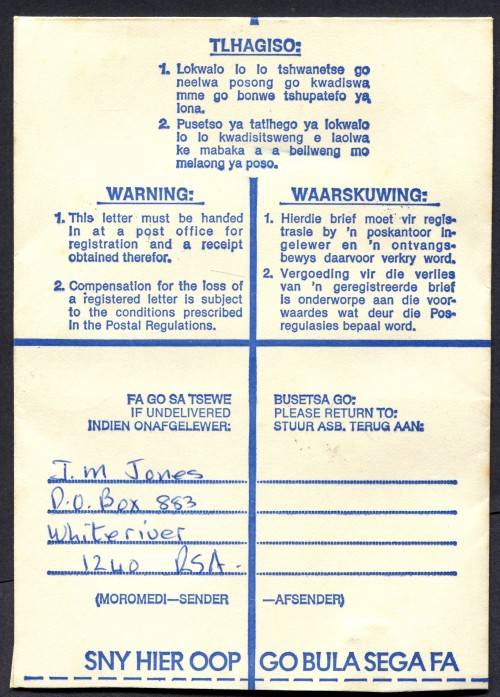 TLHAGISO:
1. Lokwalo lo lo tshwanetse go
neelwa posong go kwadiswa
mme go bonwe tshupatefo ya
lona.
2. Pusetso ya tatlhego ya lokwalo
lo lo kwadisitsweng e laolwa
ke mabaka a a beilweng mo
melaong ya poso.
WARNING:
1. This letter must be handed
in at a post office for
registration and a receipt
obtained therefor.
2. Compensation for the loss of
a registered letter is subject
to the conditions prescribed
in the Postal Regulations.
WAARSKUWING:
1. Hierdie brief moet vir regis-
trasie by 'n poskantoor in-
gelewer en 'n ontvangs-
bewys daarvoor verkry word.
2. Vergoeding vir die verlies
van 'n geregistreerde brief
is onderworpe aan die voor-
waardes wat deur die Pos-
regulasies bepaal word.
FA GO SA TSEWE
IF UNDELIVERED
INDIEN ONAFGELEWER:
BUSETSA GO:
PLEASE RETURN TO:
STUUR ASB. TERUG AAN:
J.M Jones
P.O. Box 883
Whiteriver
1240 RSA.
(MOROMEDI—SENDER —AFSENDER)
SNY HIER OOP GO BULA SEGA FA